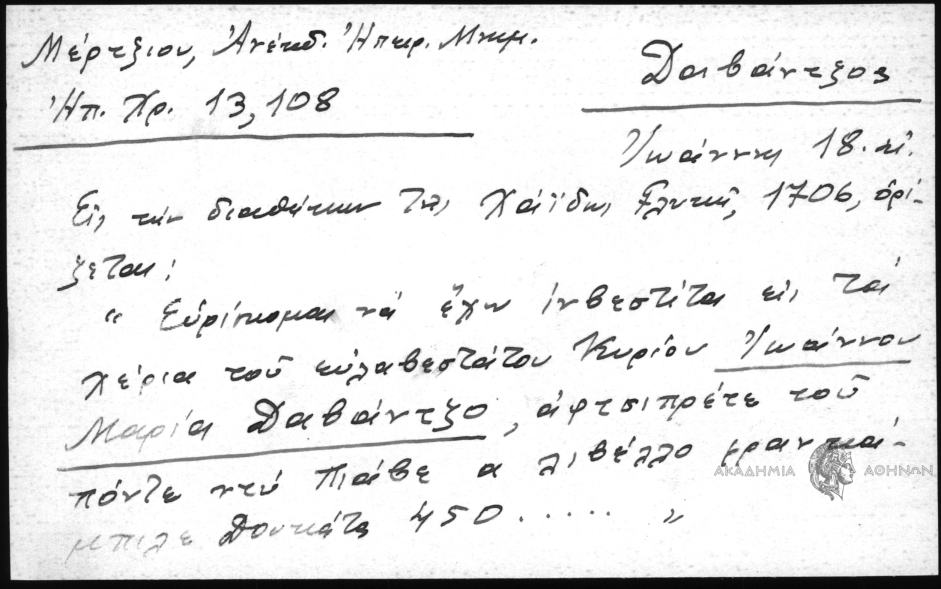 Μέρτζιου, Ἀνέκδ. Ἠπειρ. Μνημ.
Ἠπ. Χρ. 13,108
Δαιβάντζος
Ἰωάννης 18. αἰ.
Εἰς τὴν διαθήκην τῆς Χάϊδως Γλυκῆ, 1706, ὁρί-
ζεται:
" Εὑρίσκομαι νὰ ἔχω ἰνβεστίτα εἰς τὰ
χέρια τοῦ εὐλαβεστάτου Κυρίου Ἰωάννου
Μαρία Δαβάντζο, ἀφτσιπρέτε τοῦ
πόντε ντὺ Πιάβε α λιβέλλο φρανκά-
μπιλε Δουκάτα 450 ..... "
ΑΚΑΔΗΜΙΑ ΑΘΗΝΩΝ